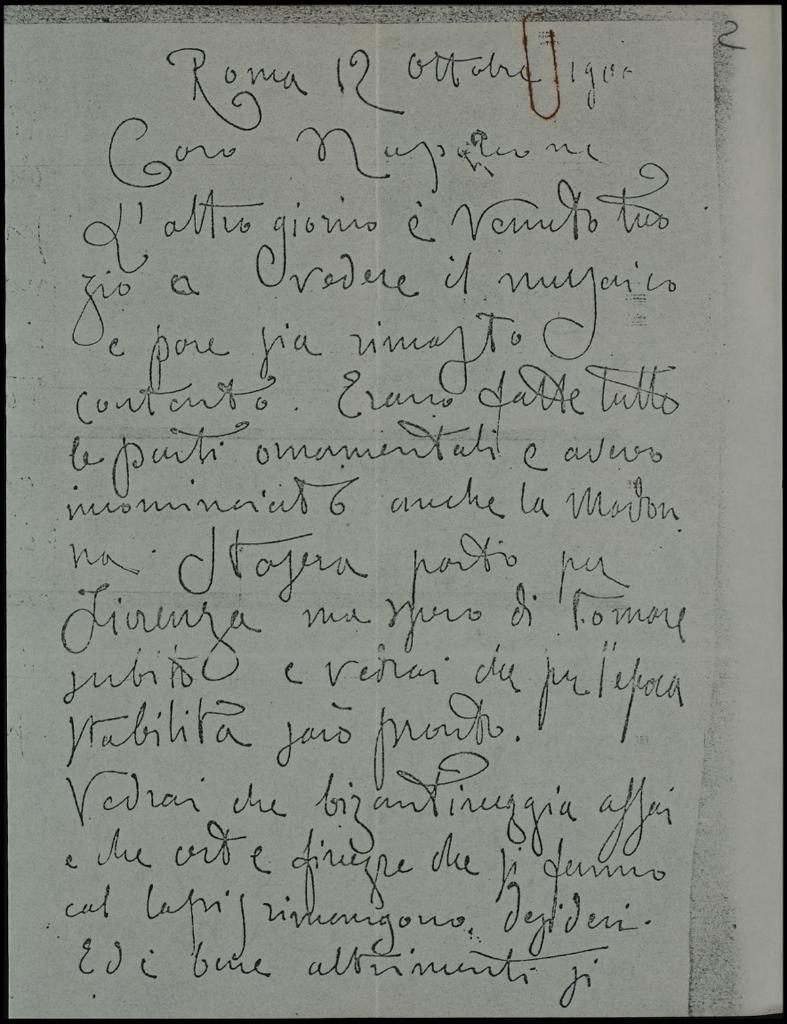 2
Roma 12 Ottobre 190
Caro Napoleone
L'altro giorno è venuto tuo
zio a vedere il musaico
e pare sia rimasto
contento. Erano fatte tutte
le parti ornamentali e avevo
incominciato anche la Madon
na. Stasera parto per
Firenze ma spero di tornare
subito e vedrai che per l'epoca
stabilita sarò pronto.
Vedrai che bizantineggia assai
e che certe finezze che si fanno
col lapis rimangono desideri.
Ed è bene altrimenti si